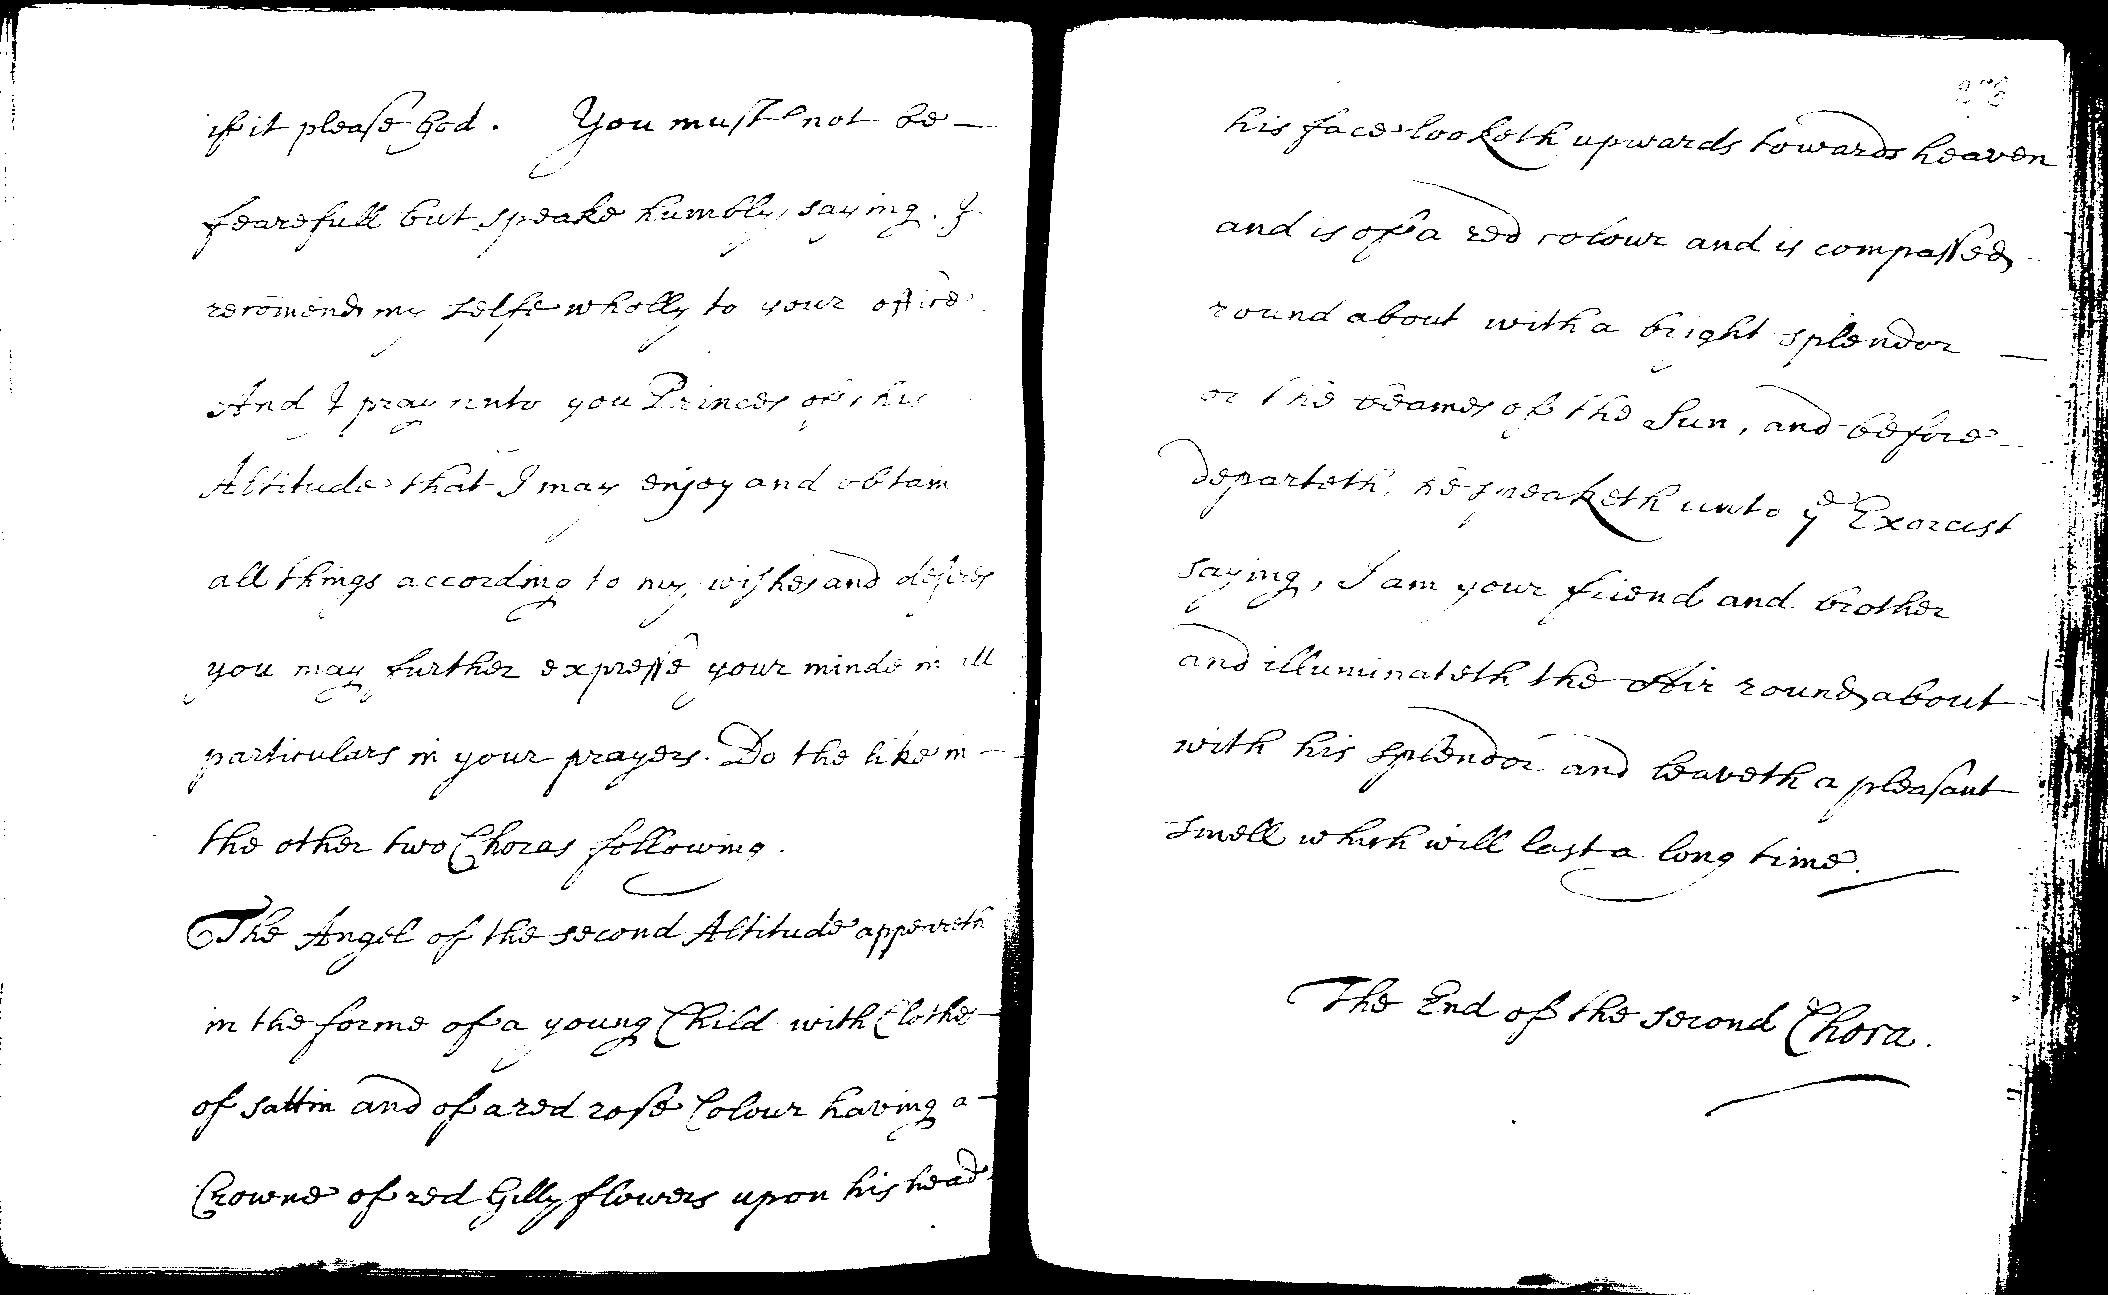 if it please God. You must not be —
fearefull but speake humbly, saying. I
recōmend my selfe wholly to your office
And I pray unto you Princes of this
Altitude that I may enjoy and obtain
all things according to my wishes and desires
you may further expresse your minde in all
particulars in your prayers. Do the like in —
the other two Choras following.
The Angel of the second Altitude appeareth
in the forme of a young Child with Clothes
of sattin and of a red rose Colour having a —
Crowne of red Gillyflowers upon his head
his face looketh upwards towards heaven
and is of a red colour and is compassed
round about with a bright splendor —
as the beames of the Sun, and before
departeth, he speaketh unto ye Exorcist
saying, I am your friend and brother
and illuminateth the Air round about
with his splendor and leaveth a pleasant
smell which will last a long time.
The End of the second Chora.